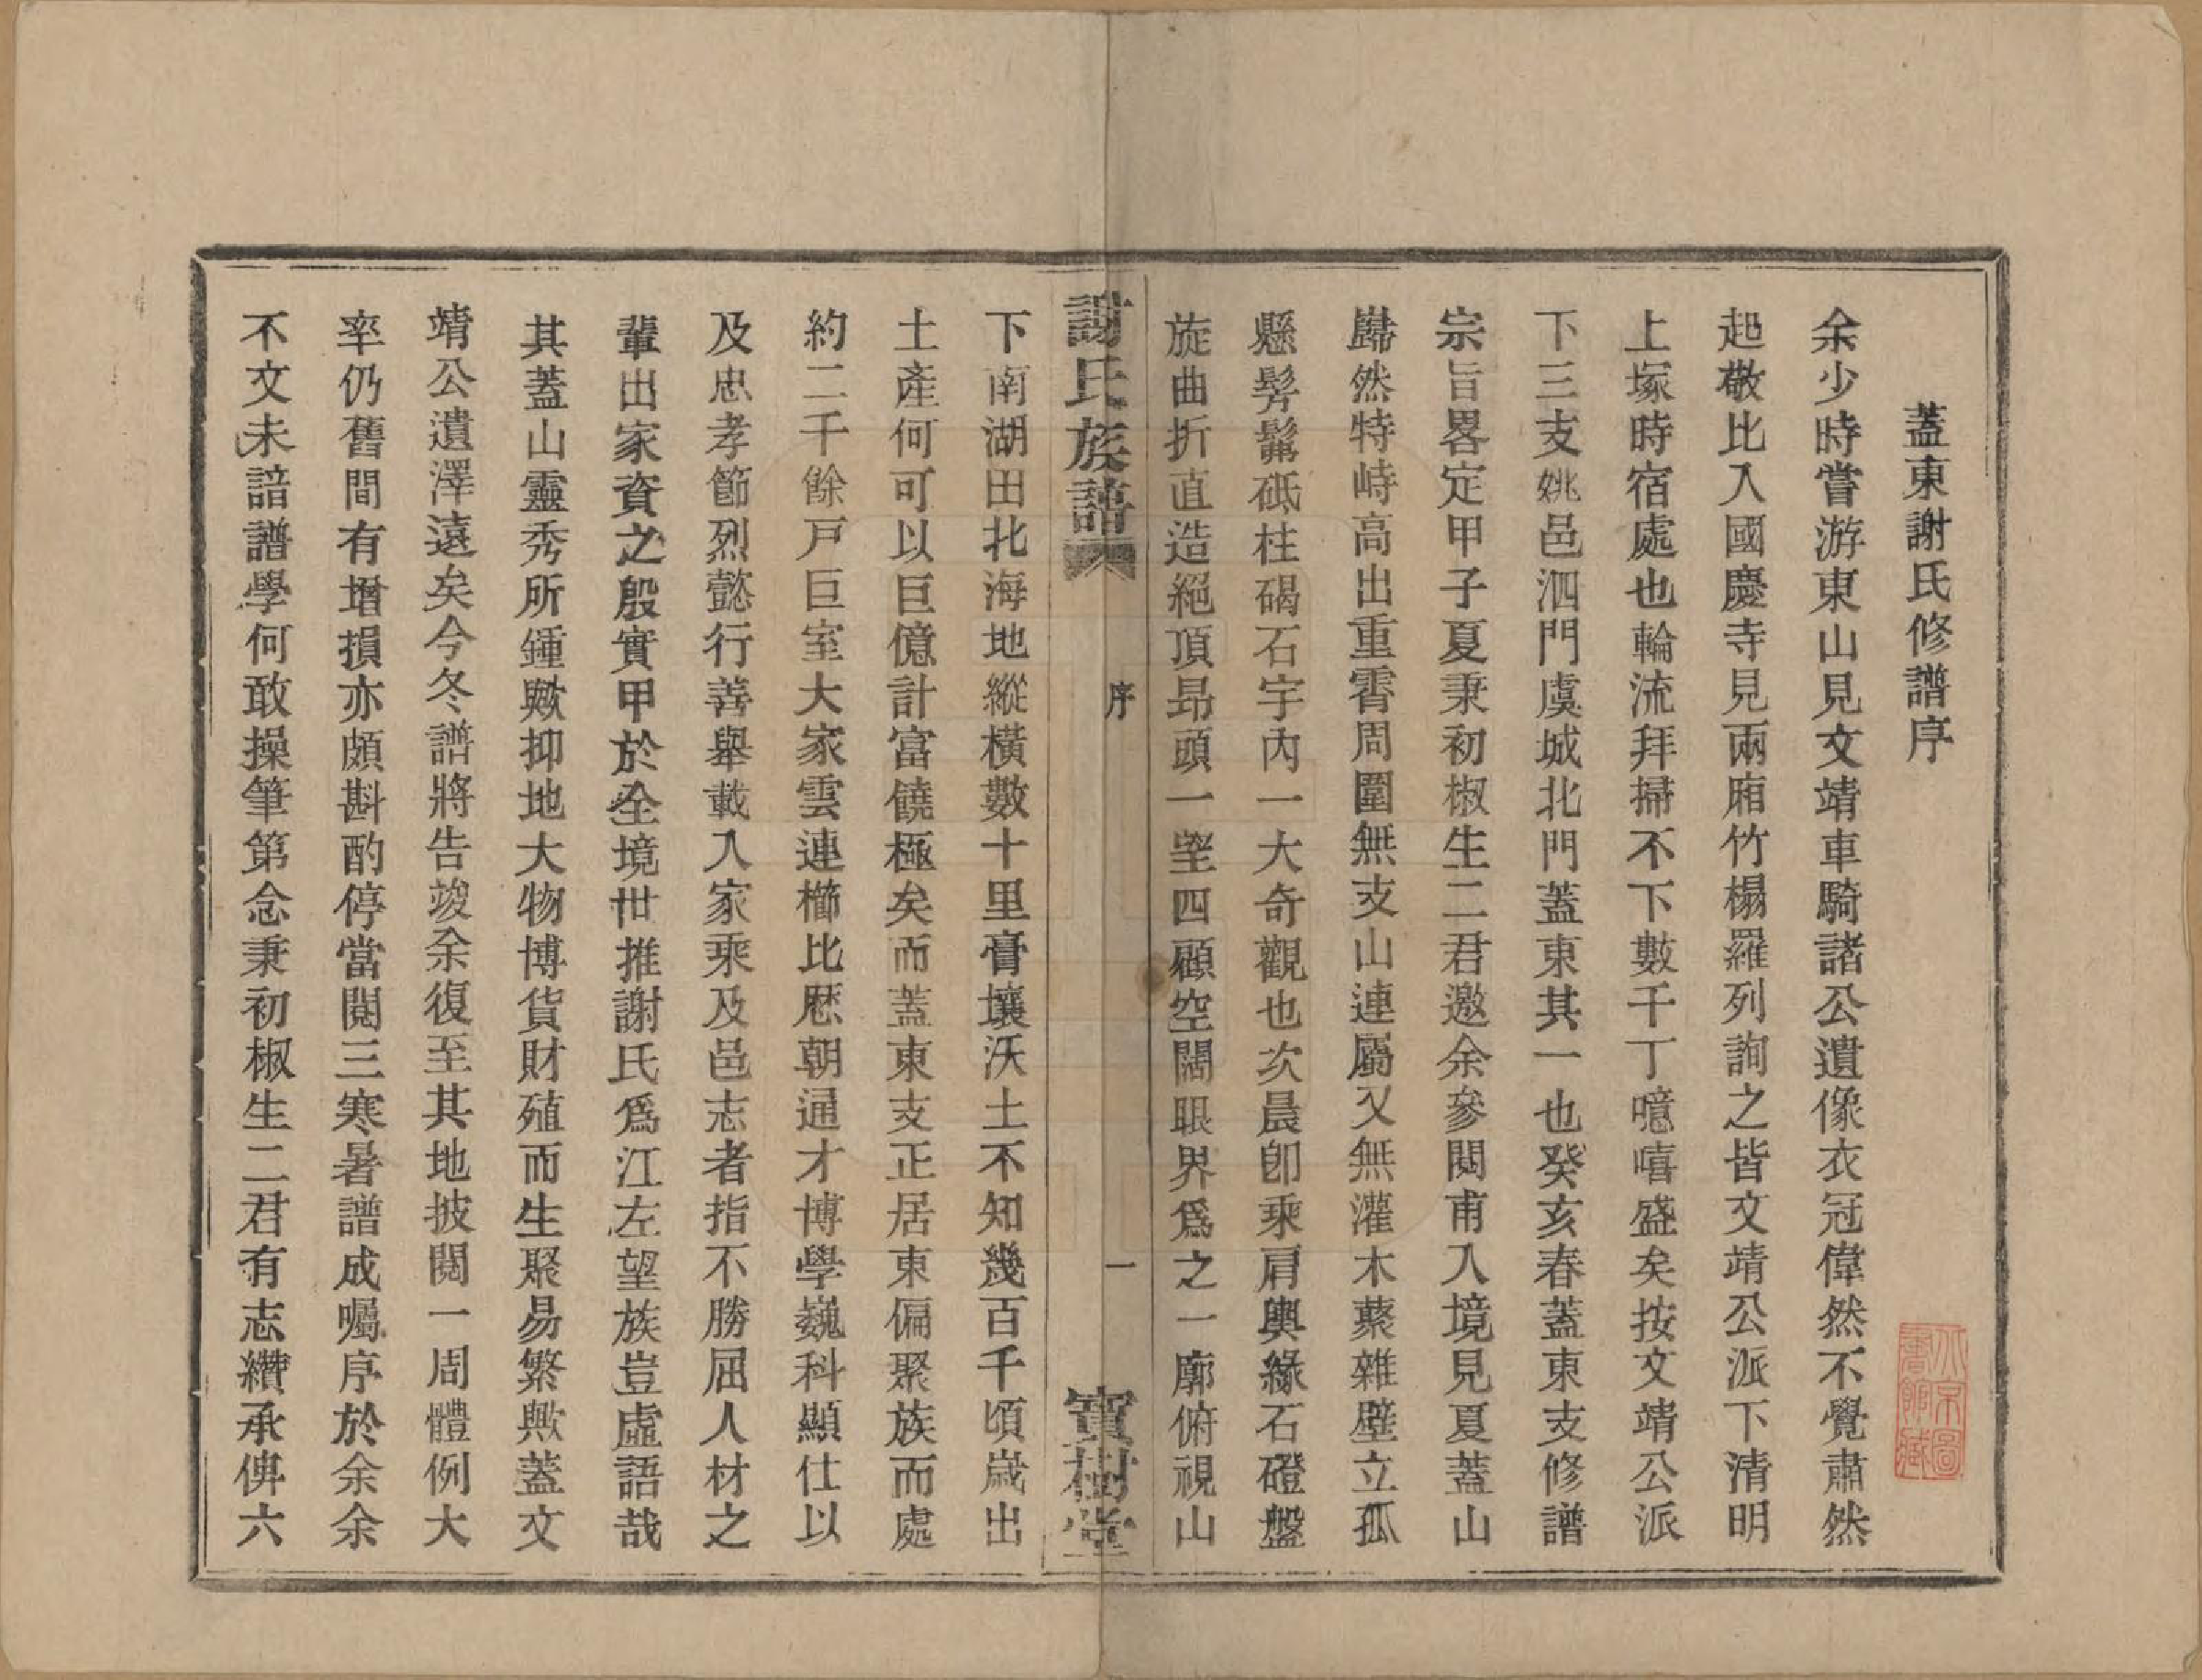 蓋東謝氏修譜序
余少時嘗游東山見文靖車騎諸公遺像衣冠偉然不覺肅然
起敬比入國慶寺見兩廂竹榻羅列詢之皆文靖公派下清明
上塚時宿處也輪流拜掃不下數千丁噫嘻盛矣按文靖公派
下三支姚邑泗門虞城北門蓋東其一也癸亥春蓋東支修譜
宗旨畧定甲子夏秉初椒生二君邀余參閱甫入境見夏蓋山
巋然特峙高出重霄周圍無支山連屬又無灌木藂雜壁立孤
懸髣髴砥柱碣石宇內一大奇觀也次晨卽乘肩輿緣石磴盤
旋曲折直造絕頂昂頭一望四顧空闊眼界爲之一廓俯視山
謝氏族譜
序
一
寶樹堂
下南湖田北海地縱橫數十里膏壤沃土不知幾百千頃歲出
土產何可以巨億計富饒極矣而蓋東支正居東偏聚族而處
約二千餘戸巨室大家雲連櫛比歷朝通才博學巍科顯仕以
及忠孝節烈懿行善舉載入家乘及邑志者指不勝屈人材之
輩出家資之殷實甲於全境世推謝氏爲江左望族豈虛語哉
其蓋山靈秀所鍾歟抑地大物博貨財殖而生聚易繁歟蓋文
靖公遺澤遠矣今冬譜將告竣余復至其地披閱一周體例大
率仍舊間有增損亦頗斟酌停當閱三寒暑譜成囑序於余余
不文未諳譜學何敢操筆第念秉初椒生二君有志纘承俾六